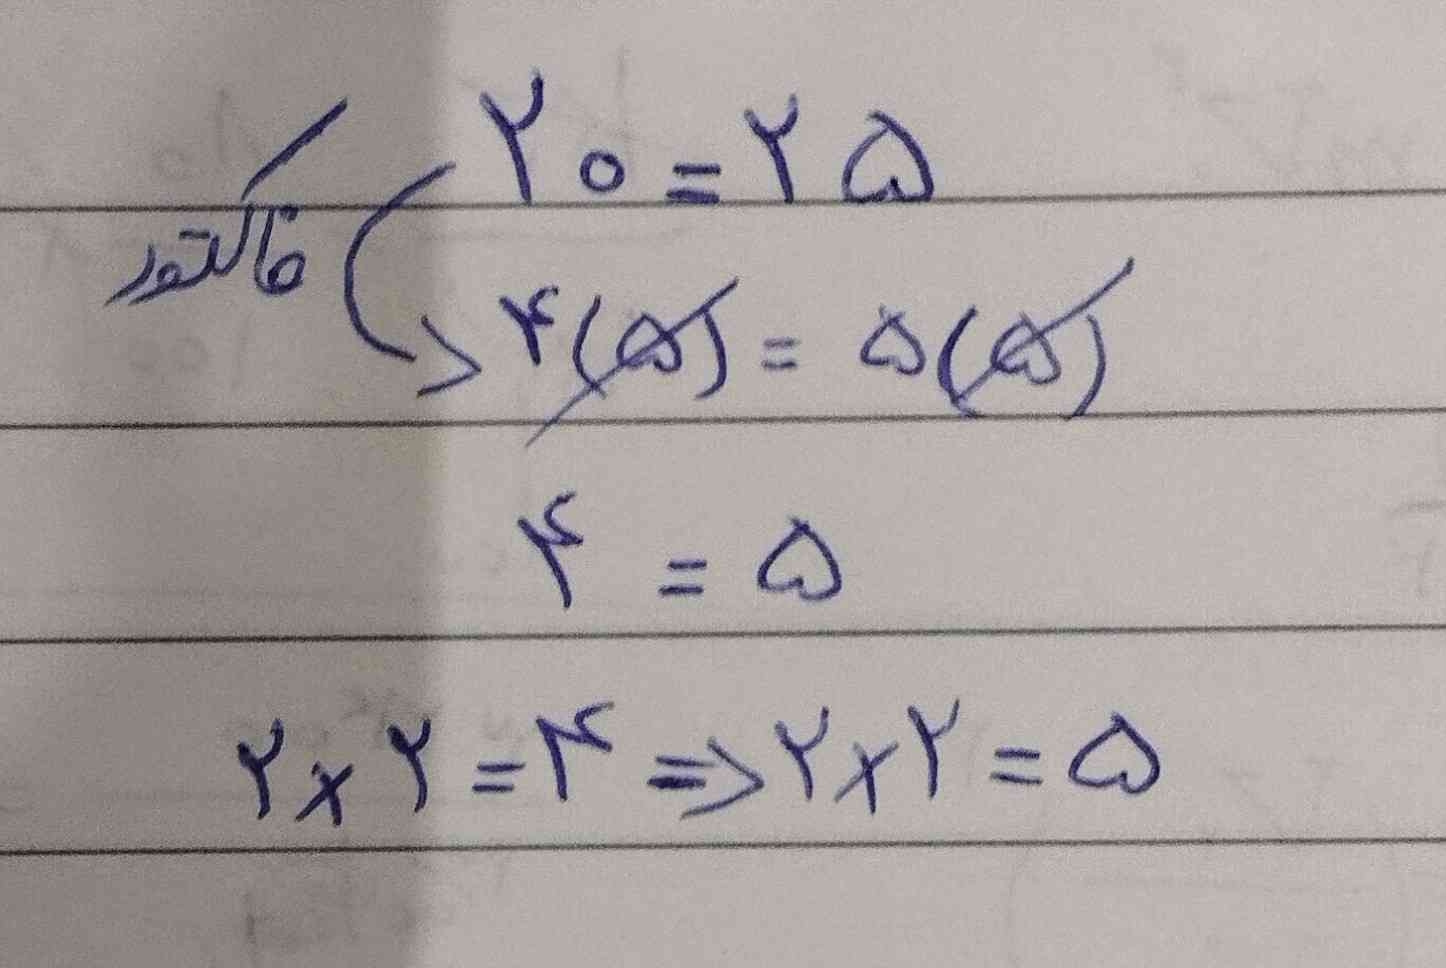 ۲۰ = ۲۵
فاکتور
۴(۵) = ۵(۵)
۴ = ۵
۲ × ۲ = ۴ => ۲ × ۲ = ۵